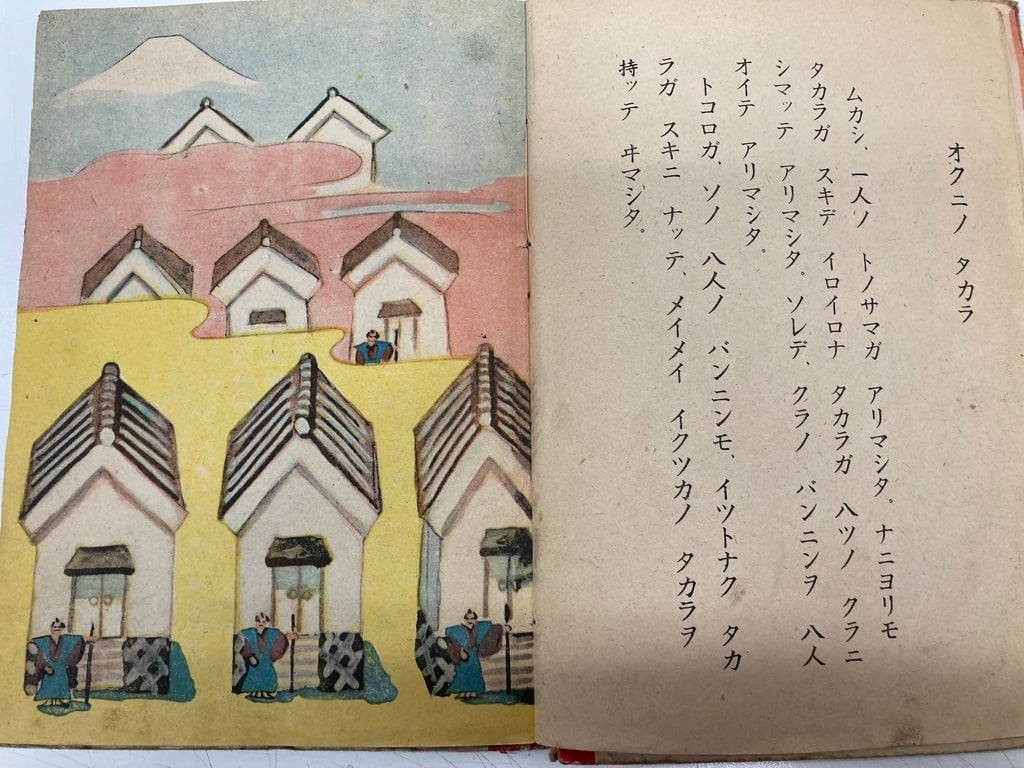 オクニノ タカラ
ムカシ、一人ノ トノサマガ アリマシタ。ナニヨリモ
タカラガ スキデ イロイロナ タカラガ 八ツノ クラニ
シマッテ アリマシタ。ソレデ、クラノ バンニンヲ 八人
オイテ アリマシタ。
トコロガ、ソノ 八人ノ バンニンモ、イツトナク タカ
ラガ スキニ ナッテ、メイメイ イクツカノ タカラヲ
持ッテ ヰマシタ。